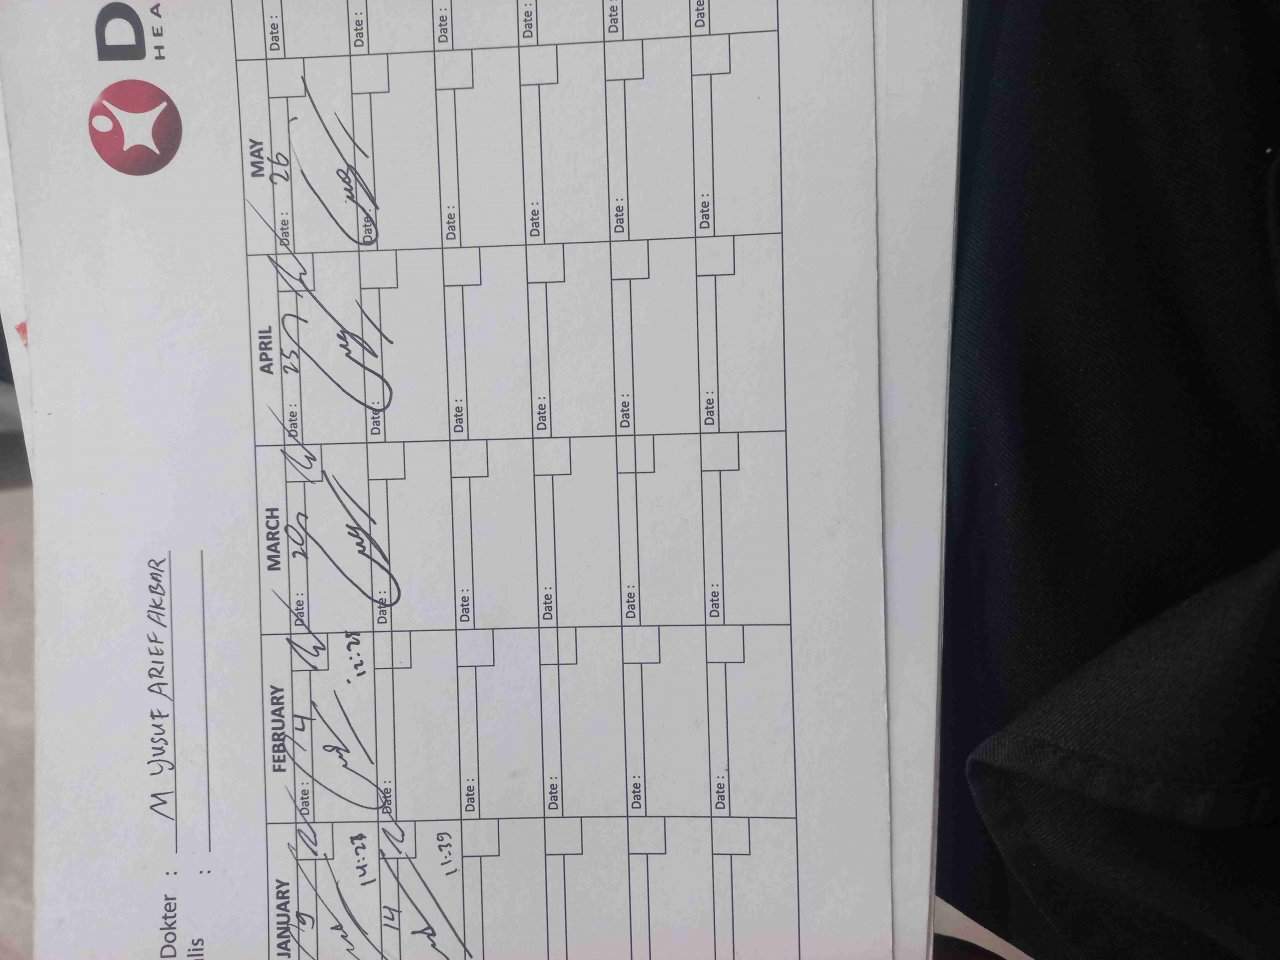 D
HEA
Dokter : M YUSUF ARIEF AKBAR
lis :
JANUARY FEBRUARY MARCH APRIL MAY
9 Date : 4 Date : 20 Date : 25 Date : 26 Date :
14:28 12:28
14 Date : Date : Date : Date : Date :
11:39
Date : Date : Date : Date : Date :
Date : Date : Date : Date : Date :
Date : Date : Date : Date : Date :
Date : Date : Date : Date : Date :